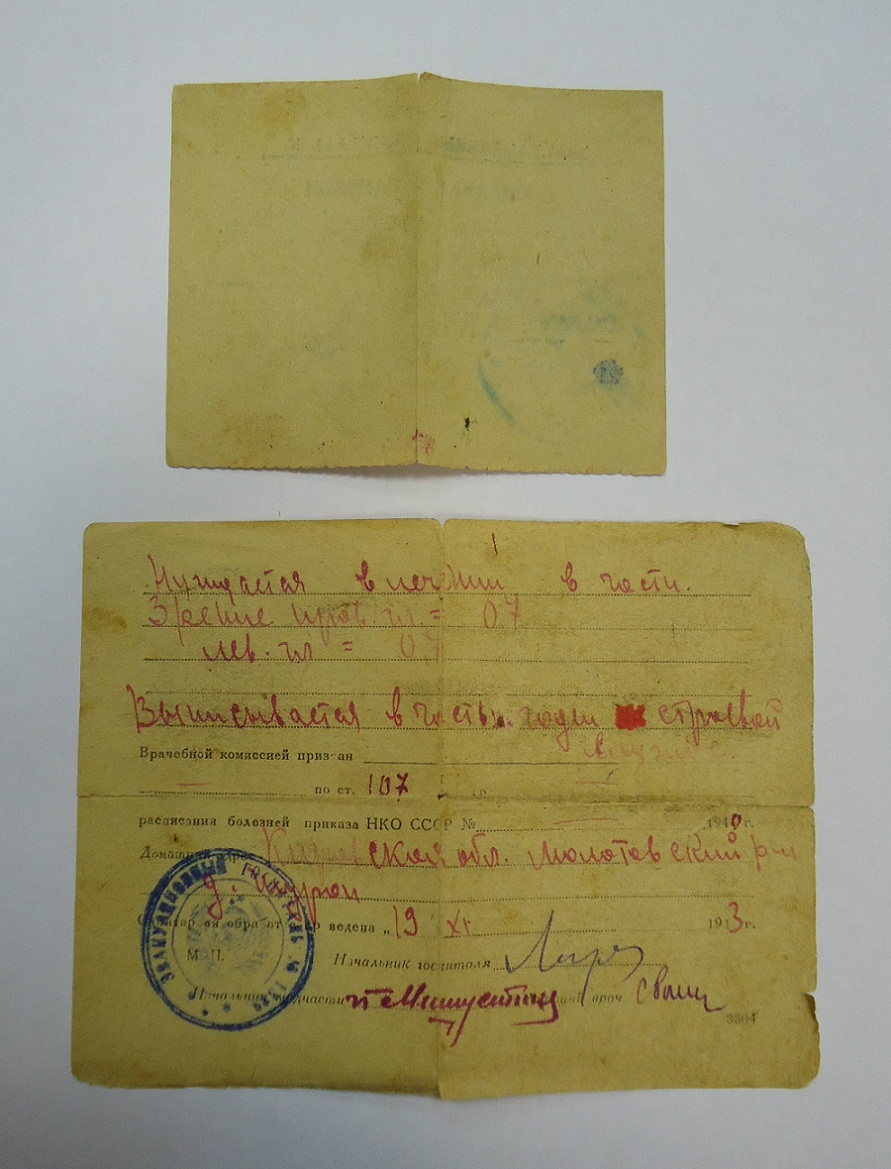 Нуждается в лечении в части.
Зрение прав. гл. = 07
лев. гл = 07
Выписывается в часть. годен строевой
службе
Врачебной комиссией признан
по ст. 107
расписания болезней приказа НКО СССР № 1940г.
Домашний адрес Кировская обл. Молотовский р-н
д.
Санитарной обработ проведена „19 XI 1943г.
ЭВАКУАЦИОННЫЙ ГОСПИТАЛЬ №
М. П.
Начальник госпиталя
Начальник медчасти врач
3304